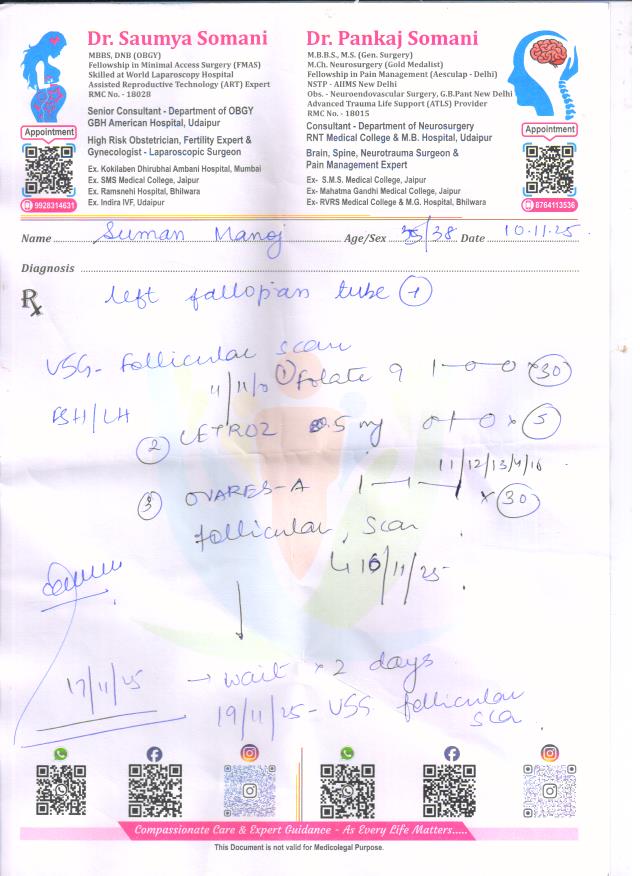 Dr. Saumya Somani
MBBS, DNB (OBGY)
Fellowship in Minimal Access Surgery (FMAS)
Skilled at World Laparoscopy Hospital
Assisted Reproductive Technology (ART) Expert
RMC No. - 18028
Senior Consultant - Department of OBGY
GBH American Hospital, Udaipur
High Risk Obstetrician, Fertility Expert &
Gynecologist - Laparoscopic Surgeon
Ex. Kokilaben Dhirubhai Ambani Hospital, Mumbai
Ex. SMS Medical College, Jaipur
Ex. Ramsnehi Hospital, Bhilwara
Ex. Indira IVF, Udaipur
Appointment
9928314631
Dr. Pankaj Somani
M.B.B.S., M.S. (Gen. Surgery)
M.Ch. Neurosurgery (Gold Medalist)
Fellowship in Pain Management (Aesculap - Delhi)
NSTP - AIIMS New Delhi
Obs. - Neuroendovascular Surgery, G.B.Pant New Delhi
Advanced Trauma Life Support (ATLS) Provider
RMC No. - 18015
Consultant - Department of Neurosurgery
RNT Medical College & M.B. Hospital, Udaipur
Brain, Spine, Neurotrauma Surgeon &
Pain Management Expert
Ex- S.M.S. Medical College, Jaipur
Ex- Mahatma Gandhi Medical College, Jaipur
Ex- RVRS Medical College & M.G. Hospital, Bhilwara
Appointment
8764113536
Name Suman Manoj Age/Sex 35/38 Date 10.11.25
Diagnosis
Rx left fallopian tube
USG - follicular scan
11/11/ ① folate 9 1-0-0 × 30
FSH/LH
② LETROZ 5 mg 0-1-0 × 5
11/12/13/
③ OVARES-A 1-1-1 × 30
follicular scan
↳ 16/11/25
↓
17/11/25 → wait × 2 days
19/11/25 - USG follicular
Compassionate Care & Expert Guidance - As Every Life Matters.....
This Document is not valid for Medicolegal Purpose.